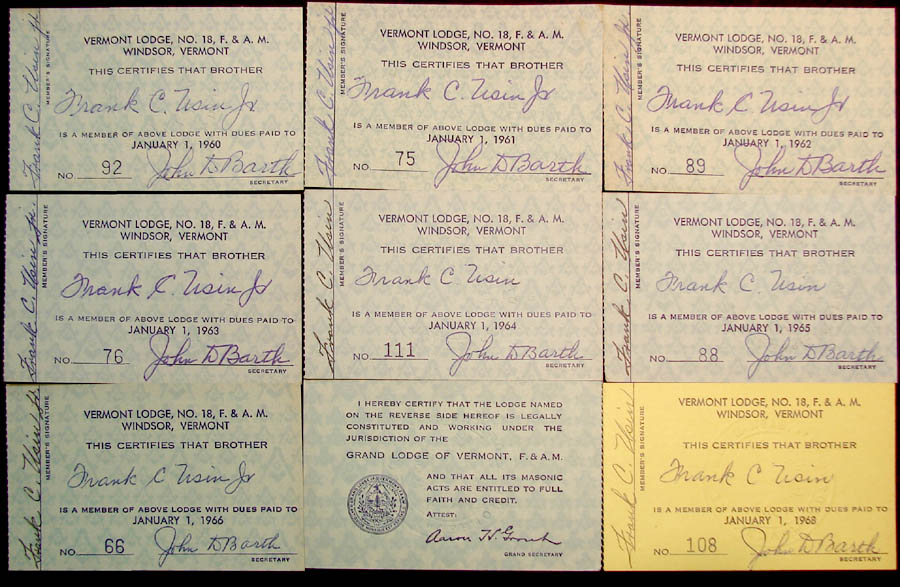 Frank C. Usin Jr
MEMBER'S SIGNATURE
VERMONT LODGE, NO. 18, F. & A. M.
WINDSOR, VERMONT
THIS CERTIFIES THAT BROTHER
Frank C. Usin Jr
IS A MEMBER OF ABOVE LODGE WITH DUES PAID TO
JANUARY 1, 1960
NO. 92 John D Barth
SECRETARY
Frank C. Usin Jr
MEMBER'S SIGNATURE
VERMONT LODGE, NO. 18, F. & A. M.
WINDSOR, VERMONT
THIS CERTIFIES THAT BROTHER
Frank C. Usin Jr
IS A MEMBER OF ABOVE LODGE WITH DUES PAID TO
JANUARY 1, 1961
NO. 75 John D Barth
SECRETARY
Frank C. Usin Jr
MEMBER'S SIGNATURE
VERMONT LODGE, NO. 18, F. & A. M.
WINDSOR, VERMONT
THIS CERTIFIES THAT BROTHER
Frank C Usin Jr
IS A MEMBER OF ABOVE LODGE WITH DUES PAID TO
JANUARY 1, 1962
NO. 89 John D Barth
SECRETARY
Frank C. Usin Jr.
MEMBER'S SIGNATURE
VERMONT LODGE, NO. 18, F. & A. M.
WINDSOR, VERMONT
THIS CERTIFIES THAT BROTHER
Frank C. Usin Jr
IS A MEMBER OF ABOVE LODGE WITH DUES PAID TO
JANUARY 1, 1963
NO. 76 John D Barth
SECRETARY
Frank C. Usin
MEMBER'S SIGNATURE
VERMONT LODGE, NO. 18, F. & A. M.
WINDSOR, VERMONT
THIS CERTIFIES THAT BROTHER
Frank C Usin
IS A MEMBER OF ABOVE LODGE WITH DUES PAID TO
JANUARY 1, 1964
NO. 111 John D Barth
SECRETARY
Frank C. Usin
MEMBER'S SIGNATURE
VERMONT LODGE, NO. 18, F. & A. M.
WINDSOR, VERMONT
THIS CERTIFIES THAT BROTHER
Frank C. Usin
IS A MEMBER OF ABOVE LODGE WITH DUES PAID TO
JANUARY 1, 1965
NO. 88 John D Barth
SECRETARY
Frank C. Usin Jr
MEMBER'S SIGNATURE
VERMONT LODGE, NO. 18, F. & A. M.
WINDSOR, VERMONT
THIS CERTIFIES THAT BROTHER
Frank C Usin Jr
IS A MEMBER OF ABOVE LODGE WITH DUES PAID TO
JANUARY 1, 1966
NO. 66 John D Barth
SECRETARY
I HEREBY CERTIFY THAT THE LODGE NAMED
ON THE REVERSE SIDE HEREOF IS LEGALLY
CONSTITUTED AND WORKING UNDER THE
JURISDICTION OF THE
GRAND LODGE OF VERMONT, F. & A. M.
AND THAT ALL ITS MASONIC
ACTS ARE ENTITLED TO FULL
FAITH AND CREDIT.
ATTEST:
Aaron H. Grout
GRAND SECRETARY
Frank C. Usin
MEMBER'S SIGNATURE
VERMONT LODGE, NO. 18, F. & A. M.
WINDSOR, VERMONT
THIS CERTIFIES THAT BROTHER
Frank C Usin
IS A MEMBER OF ABOVE LODGE WITH DUES PAID TO
JANUARY 1, 1968
NO. 108 John D Barth
SECRETARY